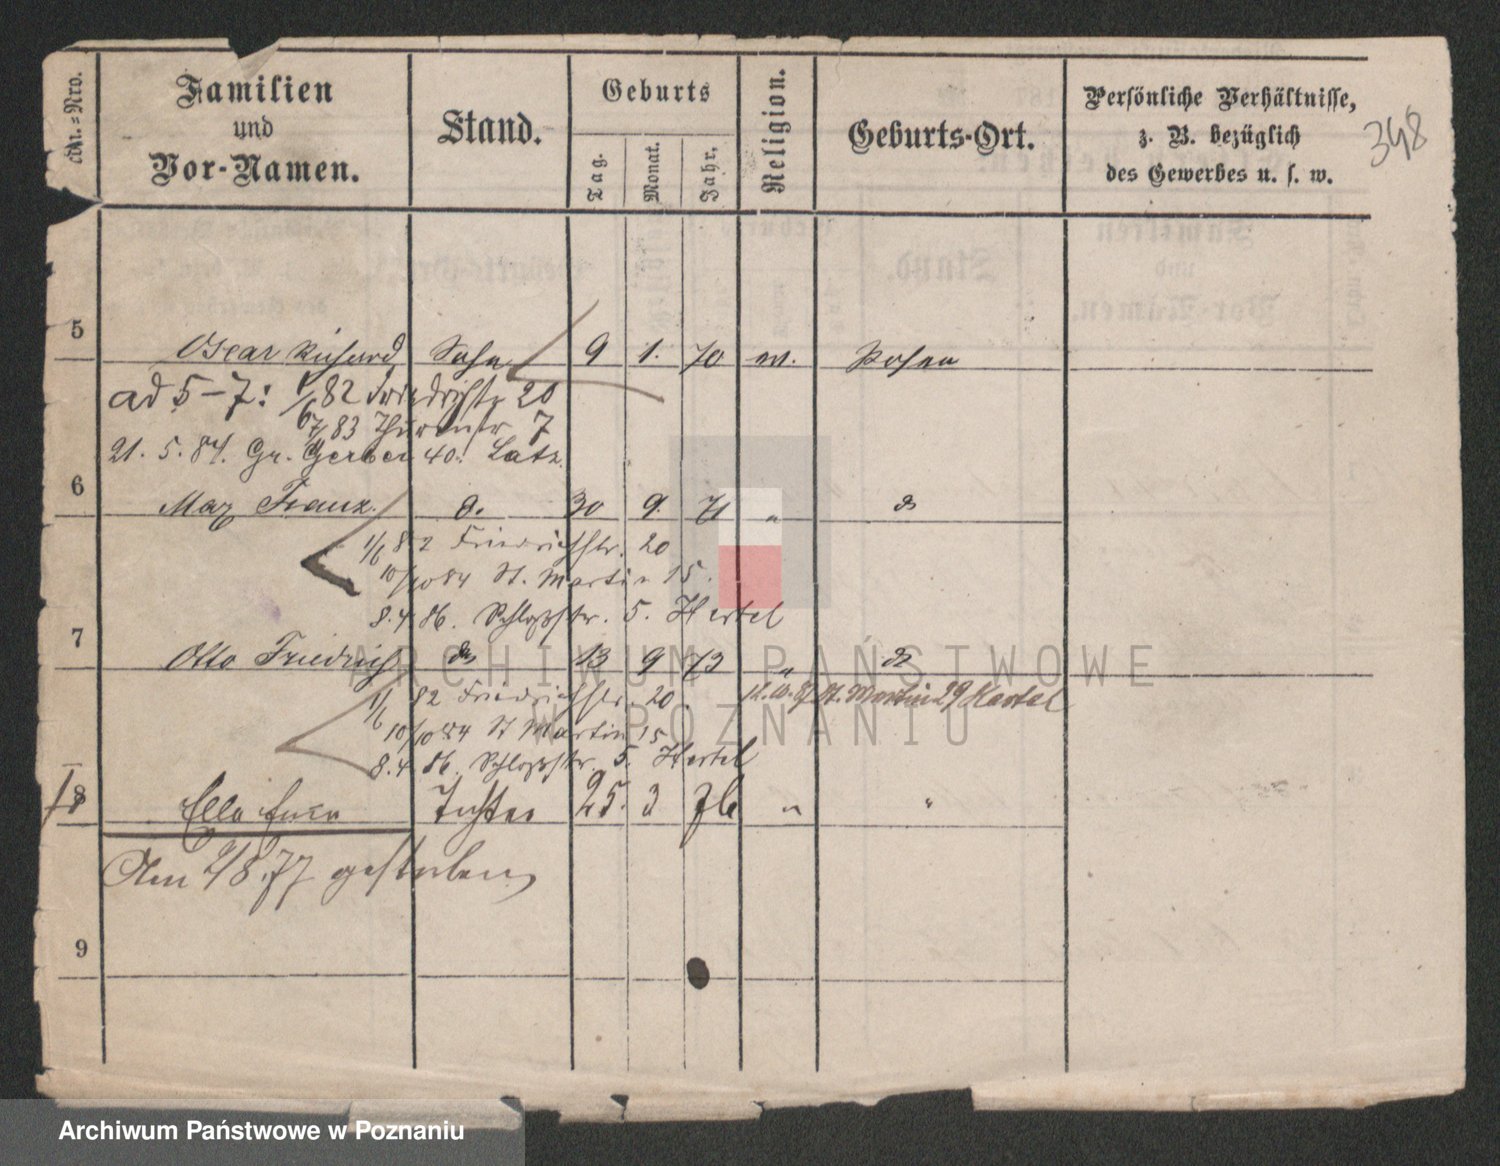 Lfd.-Nro.
Familien
und
Vor-Namen.
Stand.
Geburts
Tag.
Monat.
Jahr.
Religion.
Geburts-Ort.
Persönliche Verhältnisse,
z. B. bezüglich
des Gewerbes u. s. w.
348
5
Oscar Richard Sohn 9 1. 70 ev. Posen
ad 5-7: 1/6 82 Friedrichstr 20
/83 Thurmstr 7
21. 5. 84. Gr. Gerber 40.
6
Max Franz. d. 30 9. 71 " do
1/6 82 Friedrichstr. 20
10/10 84 St. Martin 15.
8. 4. 86. Schloßstr. 5. Hertel
7
Otto Friedrich do 13 9 73 " do
1/6 82 Friedrichstr. 20. St. Martin 29
10/10 84 St Martin 15
8. 4. 86. Schloßstr. 5. Hertel
8
Ella Tochter 25. 3 76 " "
Am 2/8.77 gestorben
9
ARCHIWUM PAŃSTWOWE
W POZNANIU
Archiwum Państwowe w Poznaniu